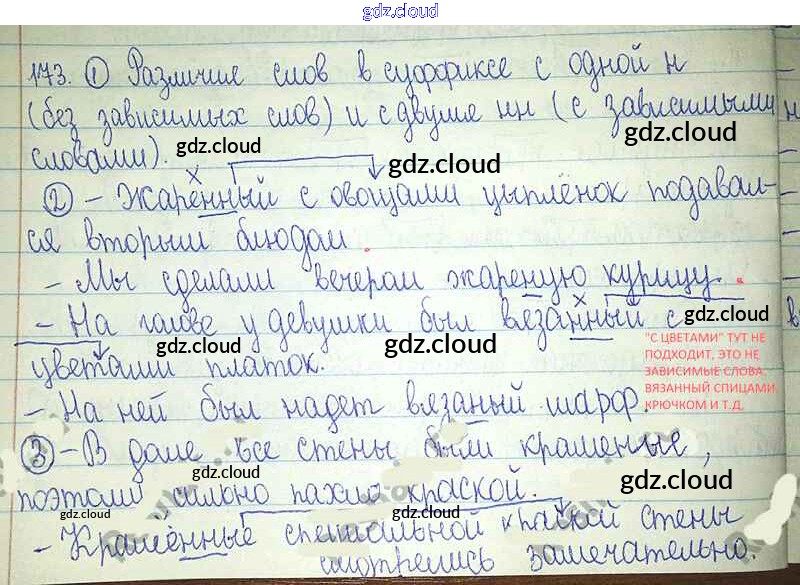 gdz.cloud
173. ① Различие слов в суффиксе с одной н
(без зависимых слов) и с двумя нн (с зависимыми
словами). gdz.cloud gdz.cloud
gdz.cloud
② - Жаренный с овощами цыплёнок подавал-
ся вторым блюдом.
gdz.cloud gdz.cloud
- Мы сделали вечером жареную курицу.
- На голове у девушки был вязанный с gdz.cloud
цветами платок. gdz.cloud gdz.cloud
"С ЦВЕТАМИ" ТУТ НЕ
ПОДХОДИТ, ЭТО НЕ
ЗАВИСИМЫЕ СЛОВА.
ВЯЗАННЫЙ СПИЦАМИ,
КРЮЧКОМ И Т.Д.
- На ней был надет вязаный шарф.
③ - В доме все стены были крашеные,
gdz.cloud gdz.cloud
поэтому сильно пахло краской.
gdz.cloud gdz.cloud gdz.cloud
- Крашенные специальной краской стены
смотрелись замечательно.